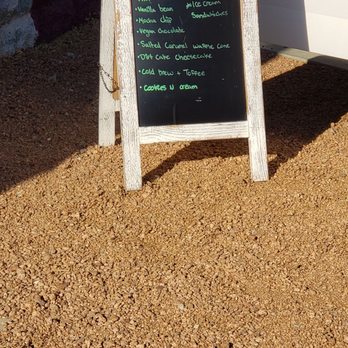 • Vanilla bean
* Ice Cream
Sandwiches
• Mocha chip
• Vegan chocolate
• Salted Caramel waffle cone
• Dirt Cake Cheesecake
• Cold brew + Toffee
• Cookies N cream